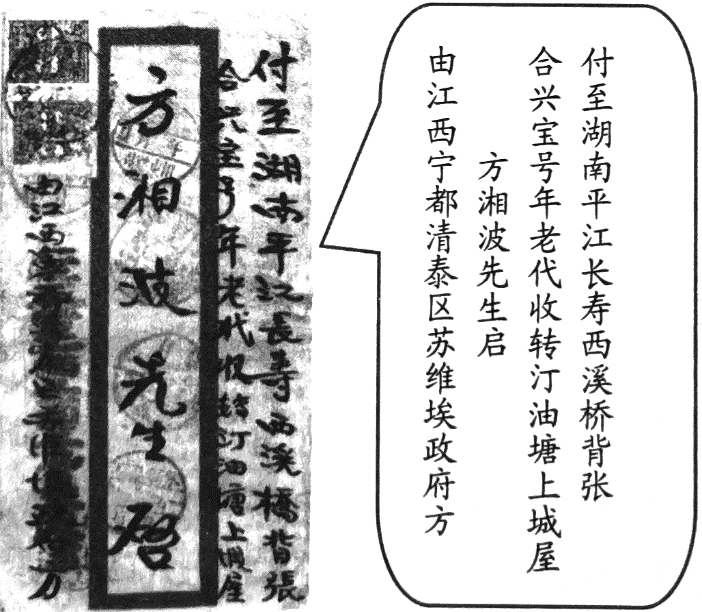 付至湖南平江長壽西溪橋背張
合兴宝号年老代收转汀油塘上城屋
方湘波先生啓
由江西
付至湖南平江长寿西溪桥背张
合兴宝号年老代收转汀油塘上城屋
方湘波先生启
由江西宁都清泰区苏维埃政府方